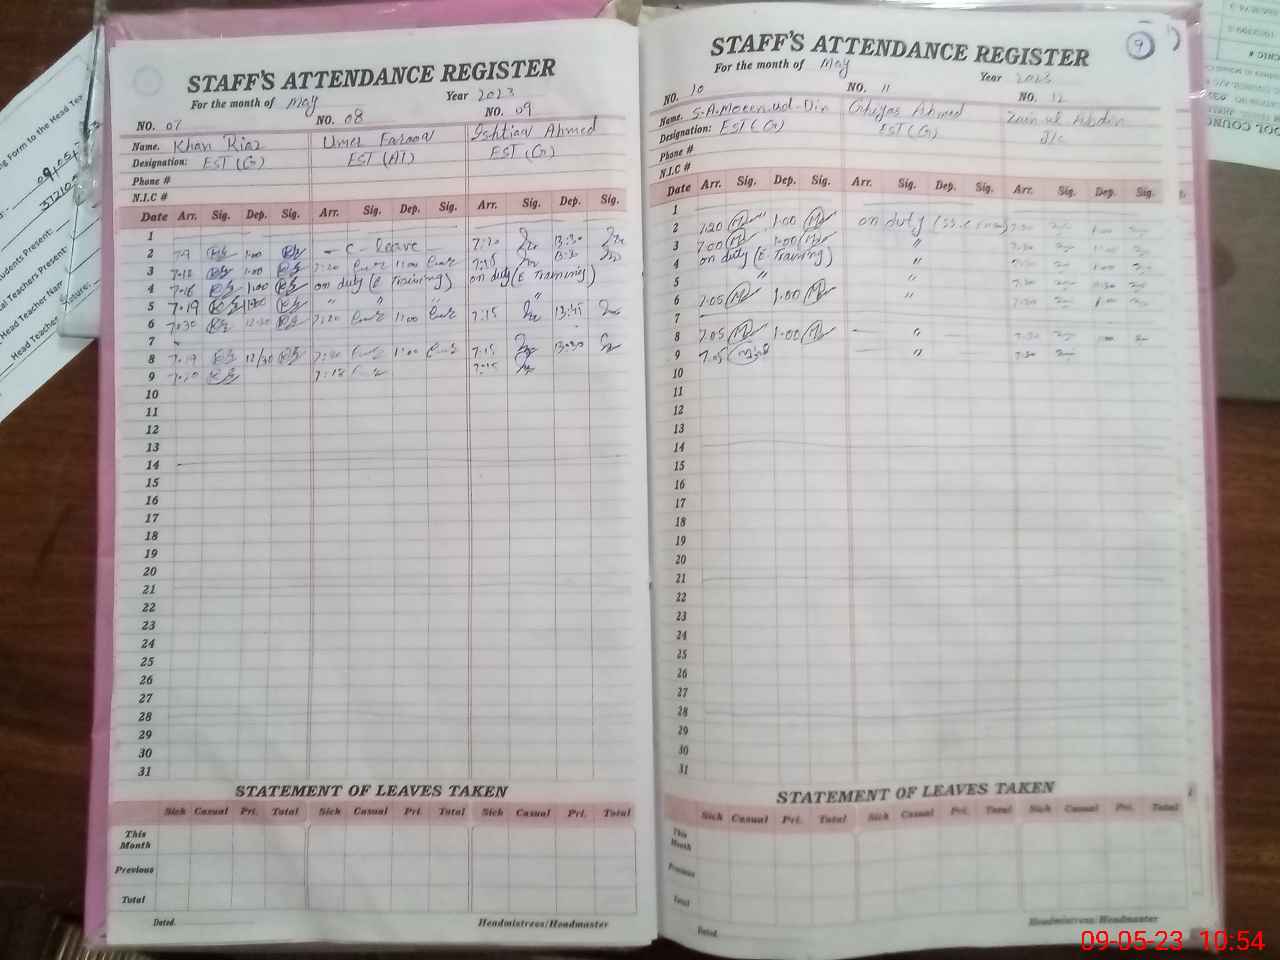 STAFF'S ATTENDANCE REGISTER
For the month of May Year 2023
NO. 07 NO. 08 NO. 09
Name. Khan Riaz Umer Farooq Ishtiaq Ahmed
Designation: EST (G) EST (AT) EST (G)
Phone #
N.I.C #
Date Arr. Sig. Dep. Sig. Arr. Sig. Dep. Sig. Arr. Sig. Dep. Sig.
1
2 1:00 - C - leave 7:20 13:30
3 7:18 1:00 7:20 1:00 7:15
4 7:18 1:00 on duty (E Training) on duty (E Training)
5 7:19 1:00 " " " "
6 7:30 12:30 7:20 1:00 7:15 13:45
7
8 7:19 12/30 7:20 1:00 7:15 13:30
9 7:20 7:18 7:15
10
11
12
13
14
15
16
17
18
19
20
21
22
23
24
25
26
27
28
29
30
31
STATEMENT OF LEAVES TAKEN
Sick Casual Pri. Total Sick Casual Pri. Total Sick Casual Pri. Total
This Month
Previous
Total
Dated. Headmistress/Headmaster
9
STAFF'S ATTENDANCE REGISTER
For the month of May Year 2023
NO. 10 NO. 11 NO. 12
Name. S.A.Moeen-ud-Din Ghayas Ahmed Zain ul Abdin
Designation: EST (G) EST (G) J/c
Phone #
N.I.C #
Date Arr. Sig. Dep. Sig. Arr. Sig. Dep. Sig. Arr. Sig. Dep. Sig.
1
2 7.20 1.00 on duty 7.30 1.00
3 7.00 1.00 " 7.30 1.00
4 on duty (E Training) "
5 " "
6 7.05 1.00 " 7.30 1.00
7
8 7.05 1.00 " 7.30 1.00
9 7.05 " 7.30
10
11
12
13
14
15
16
17
18
19
20
21
22
23
24
25
26
27
28
29
30
31
STATEMENT OF LEAVES TAKEN
Sick Casual Pri. Total Sick Casual Pri. Total Sick Casual Pri. Total
This Month
Previous
Total
Dated. Headmistress/Headmaster
09-05-23 10:54